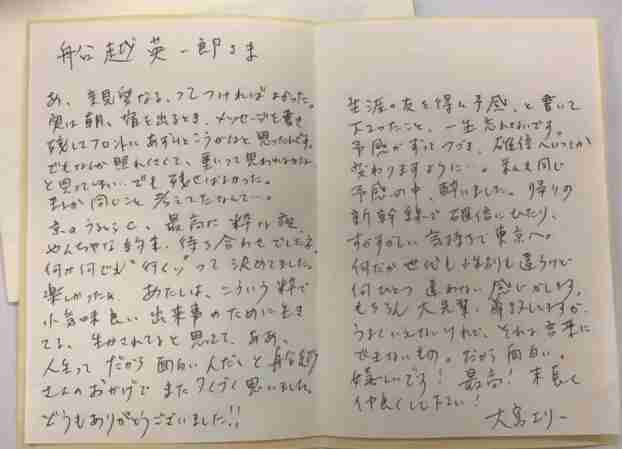 船越 英一郎さま
あ、親展なる、ってつければよかった。
実は朝、宿を出るとき、メッセージを書き
残してフロントにあずけとこうかなと思ったんです。
でもなんか照れくさくて、重いって思われるかな
と思ってしまい、でも残せばよかった。
まさか同じこと考えてたなんて…。
京の 最高に粋な
やんちゃな約束、待ち合わせでしたネ。
何が何でも"行くゾ"って決めてました。
楽しかったぁ。 あたしは、こういう粋で
小気味良い出来事のために生き
てる、生かされてると思ってて、ああ、
人生って だから面白いんだ と船越
さんのおかげで またつくづく思いました。
どうもありがとうございました!!
生涯の友を得る予感、と書いて
下さったこと、一生忘れないです。
予感がずっとつづき、確信へいつしか
変わりますように…。 私も同じ
予感の中、酔いました。帰りの
新幹線で確信にひたり、
すがすがしい気持ちで東京へ。
何だか世代も性別も違うけど
何ひとつ 違わない 感じがします。
もちろん 大先輩、尊敬しますが、
うまくいえないけれど、それは言葉に
できないもの。だから面白い。
嬉しいです! 最高! 末長く
仲良くして下さい!
大宮エリー